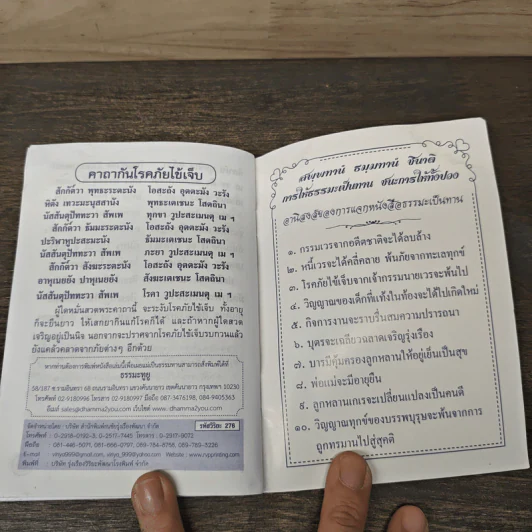 คาถากันโรคภัยไข้เจ็บ
สักกัต๎วา พุทธะระตะนัง โอสะถัง อุตตะมัง วะรัง
หิตัง เทวะมะนุสสานัง พุทธะเตเชนะ โสตถินา
นัสสันตุปัททะวา สัพเพ ทุกขา วูปะสะเมนตุ เม ฯ
สักกัต๎วา ธัมมะระตะนัง โอสะถัง อุตตะมัง วะรัง
ปะริฬาหูปะสะมะนัง ธัมมะเตเชนะ โสตถินา
นัสสันตุปัททะวา สัพเพ ภะยา วูปะสะเมนตุ เม ฯ
สักกัต๎วา สังฆะระตะนัง โอสะถัง อุตตะมัง วะรัง
อาหุเนยยัง ปาหุเนยยัง สังฆะเตเชนะ โสตถินา
นัสสันตุปัททะวา สัพเพ โรคา วูปะสะเมนตุ เม ฯ
ผู้ใดหมั่นสวดพระคาถานี้ จะระงับโรคภัยไข้เจ็บ ทั้งอายุ
ก็จะยืนยาว ให้เสกยากินแก้โรคก็ได้ และถ้าหากผู้ใดสวด
เจริญอยู่เป็นนิจ นอกจากจะปราศจากโรคภัยไข้เจ็บรบกวนแล้ว
ยังแคล้วคลาดจากภัยต่างๆ อีกด้วย
หากท่านต้องการพิมพ์หนังสือเล่มนี้เพื่อมอบเป็นธรรมทานสามารถสั่งพิมพ์ได้ที่
58/187 ซ.รามอินทรา 68 ถนนรามอินทรา แขวงคันนายาว เขตคันนายาว กรุงเทพฯ 10230
โทรศัพท์ 02-9180996 โทรสาร 02-9180997 มือถือ 087-3476198, 084-9405363
อีเมล์ sales@dhamma2you.com เว็บไซต์ www.dhamma2you.com
รหัสวิริยะ 278
โทรศัพท์ : 0-2218-0192-3, 0-2517-7445 โทรสาร : 0-2917-9072
พิมพ์ที่ : บริษัท รุ่งเรืองวิริยะพัฒนาโรงพิมพ์ จำกัด
สพฺพทานํ ธมฺมทานํ ชินาติ
การให้ธรรมะเป็นทาน ชนะการให้ทั้งปวง
อานิสงส์ของการแจกหนังสือธรรมะเป็นทาน
๑. กรรมเวรจากอดีตชาติจะได้ลบล้าง
๒. หนี้เวรจะได้คลี่คลาย พ้นภัยจากทะเลทุกข์
๓. โรคภัยไข้เจ็บจากเจ้ากรรมนายเวรจะพ้นไป
๔. วิญญาณของเด็กที่แท้งในท้องจะได้ไปเกิดใหม่
๕. กิจการงานจะราบรื่นสมความปรารถนา
๖. บุตรจะเฉลียวฉลาดเจริญรุ่งเรือง
๗. บารมีคุ้มครองลูกหลานให้อยู่เย็นเป็นสุข
๘. พ่อแม่จะมีอายุยืน
๙. ลูกหลานเกเรจะเปลี่ยนแปลงเป็นคนดี
๑๐. วิญญาณทุกข์ของบรรพบุรุษจะพ้นจากการ
ถูกทรมานไปสู่สุคติ